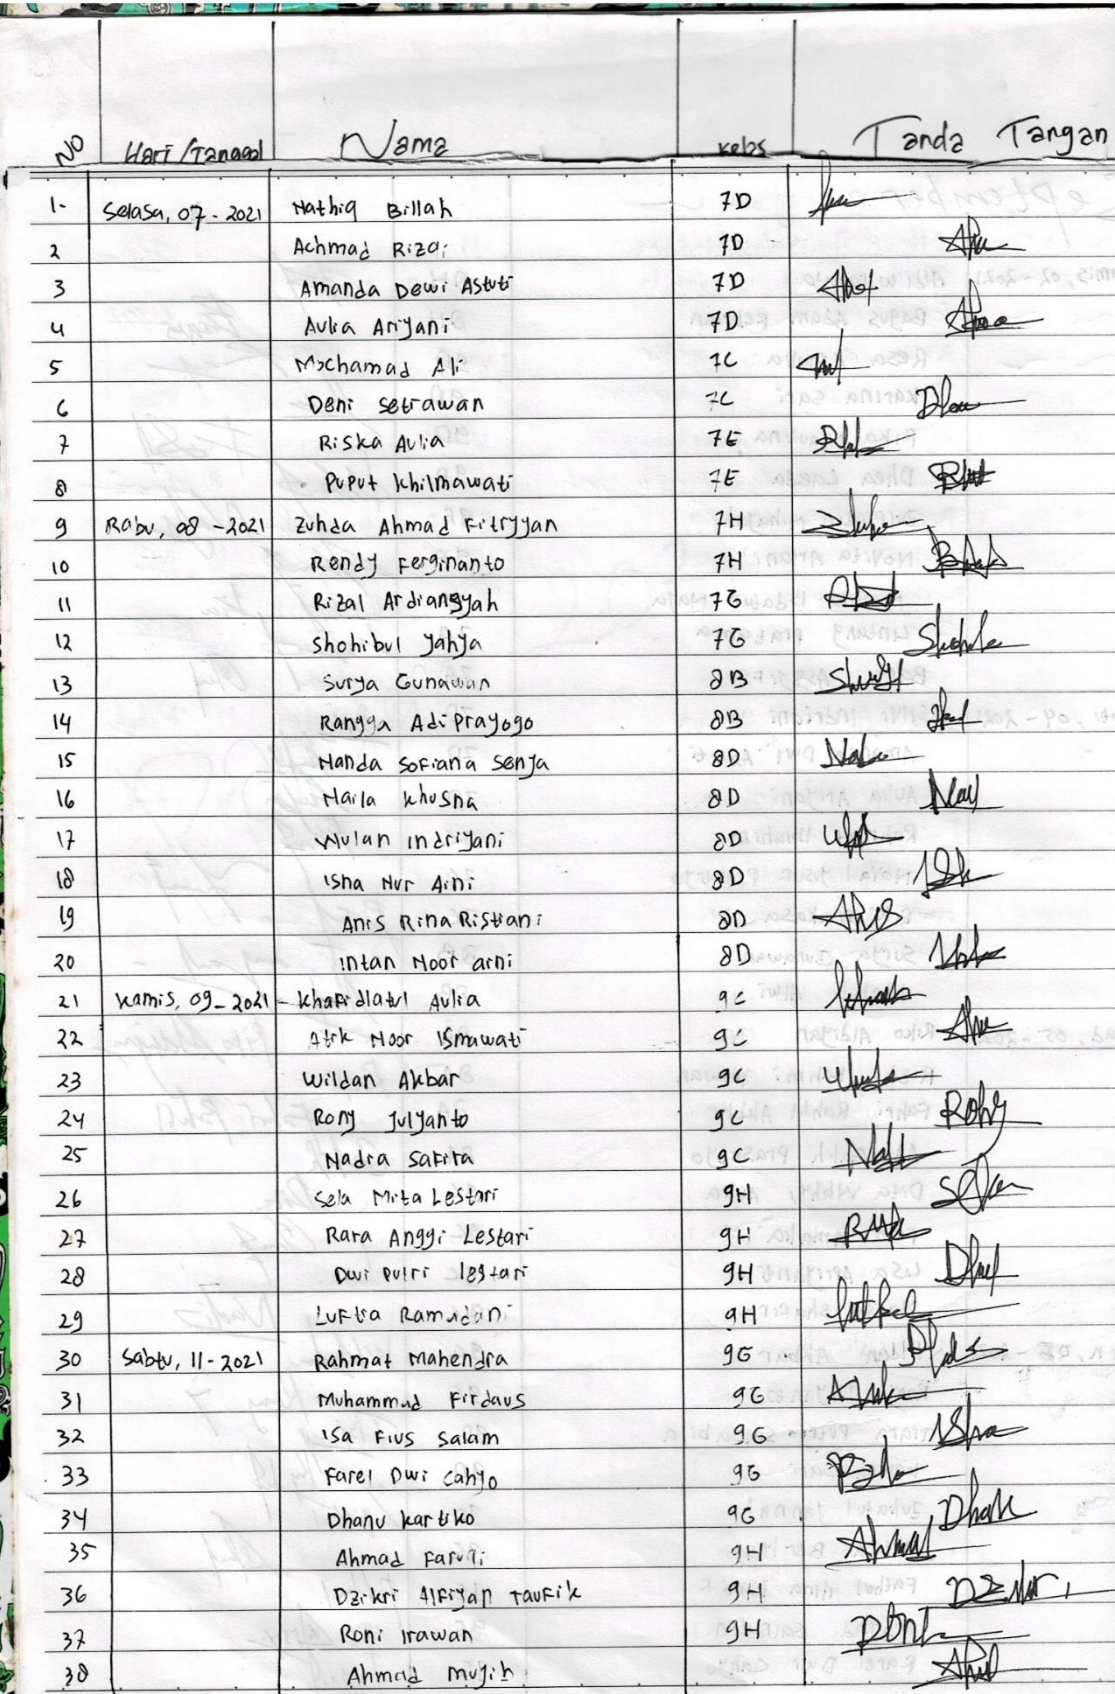 NO Hari/Tanggal Nama Kelas Tanda Tangan
1. Selasa, 07-2021 Nathiq Billah 7D
2 Achmad Rizqi 7D
3 Amanda Dewi Astuti 7D
4 Aulia Ariyani 7D
5 Mochamad Ali 7C
6 Deni Setrawan 7C
7 Riska Aulia 7E
8 Puput Khilmawati 7E
9 Rabu, 08-2021 Zuhda Ahmad Fitryyan 7H
10 Rendy Ferginanto 7H
11 Rizal Ardiansyah 7G
12 Shohibul Yahya 7G
13 Surya Gunawan 8B
14 Rangga Adi Prayogo 8B
15 Nanda Sofiana Senja 8D
16 Naila Khusna 8D
17 Wulan Indriyani 8D
18 Isna Nur Aini 8D
19 Anis Rina Ristiani 8D
20 Intan Noor aini 8D
21 Kamis, 09-2021 Khafidlatul Aulia 9C
22 Atik Noor Ismawati 9C
23 Wildan Akbar 9C
24 Rony Julyanto 9C Rony
25 Nadra Safira 9C
26 Sela Mita Lestari 9H
27 Rara Anggi Lestari 9H
28 Dwi Putri lestari 9H
29 Lutfia Ramadani 9H
30 Sabtu, 11-2021 Rahmat Mahendra 9G
31 Muhammad Firdaus 9G
32 Isa Fius Salam 9G
33 Farel Dwi Cahyo 9G
34 Dhanu Kartiko 9G
35 Ahmad Faruqi 9H Ahmad
36 Dzikri Alfiyan Taufik 9H Dzikri
37 Roni Irawan 9H
38 Ahmad Mujib